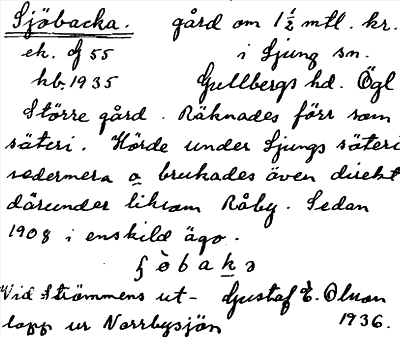 Sjöbacka. gård om 1 1/2 mtl. kr.
ek. G 55 i Ljung sn.
hb. 1935 Gullbergs hd. Ögl
Större gård. Räknades förr som
säteri. Hörde under Ljungs säteri
sedermera o brukades även direkt
därunder liksom Råby. Sedan
1908 i enskild ägo.
ʃ ö̀ b a k ə
Vid Strömmens ut- Gustaf E. Olsson
lopp ur Norrbysjön 1936.